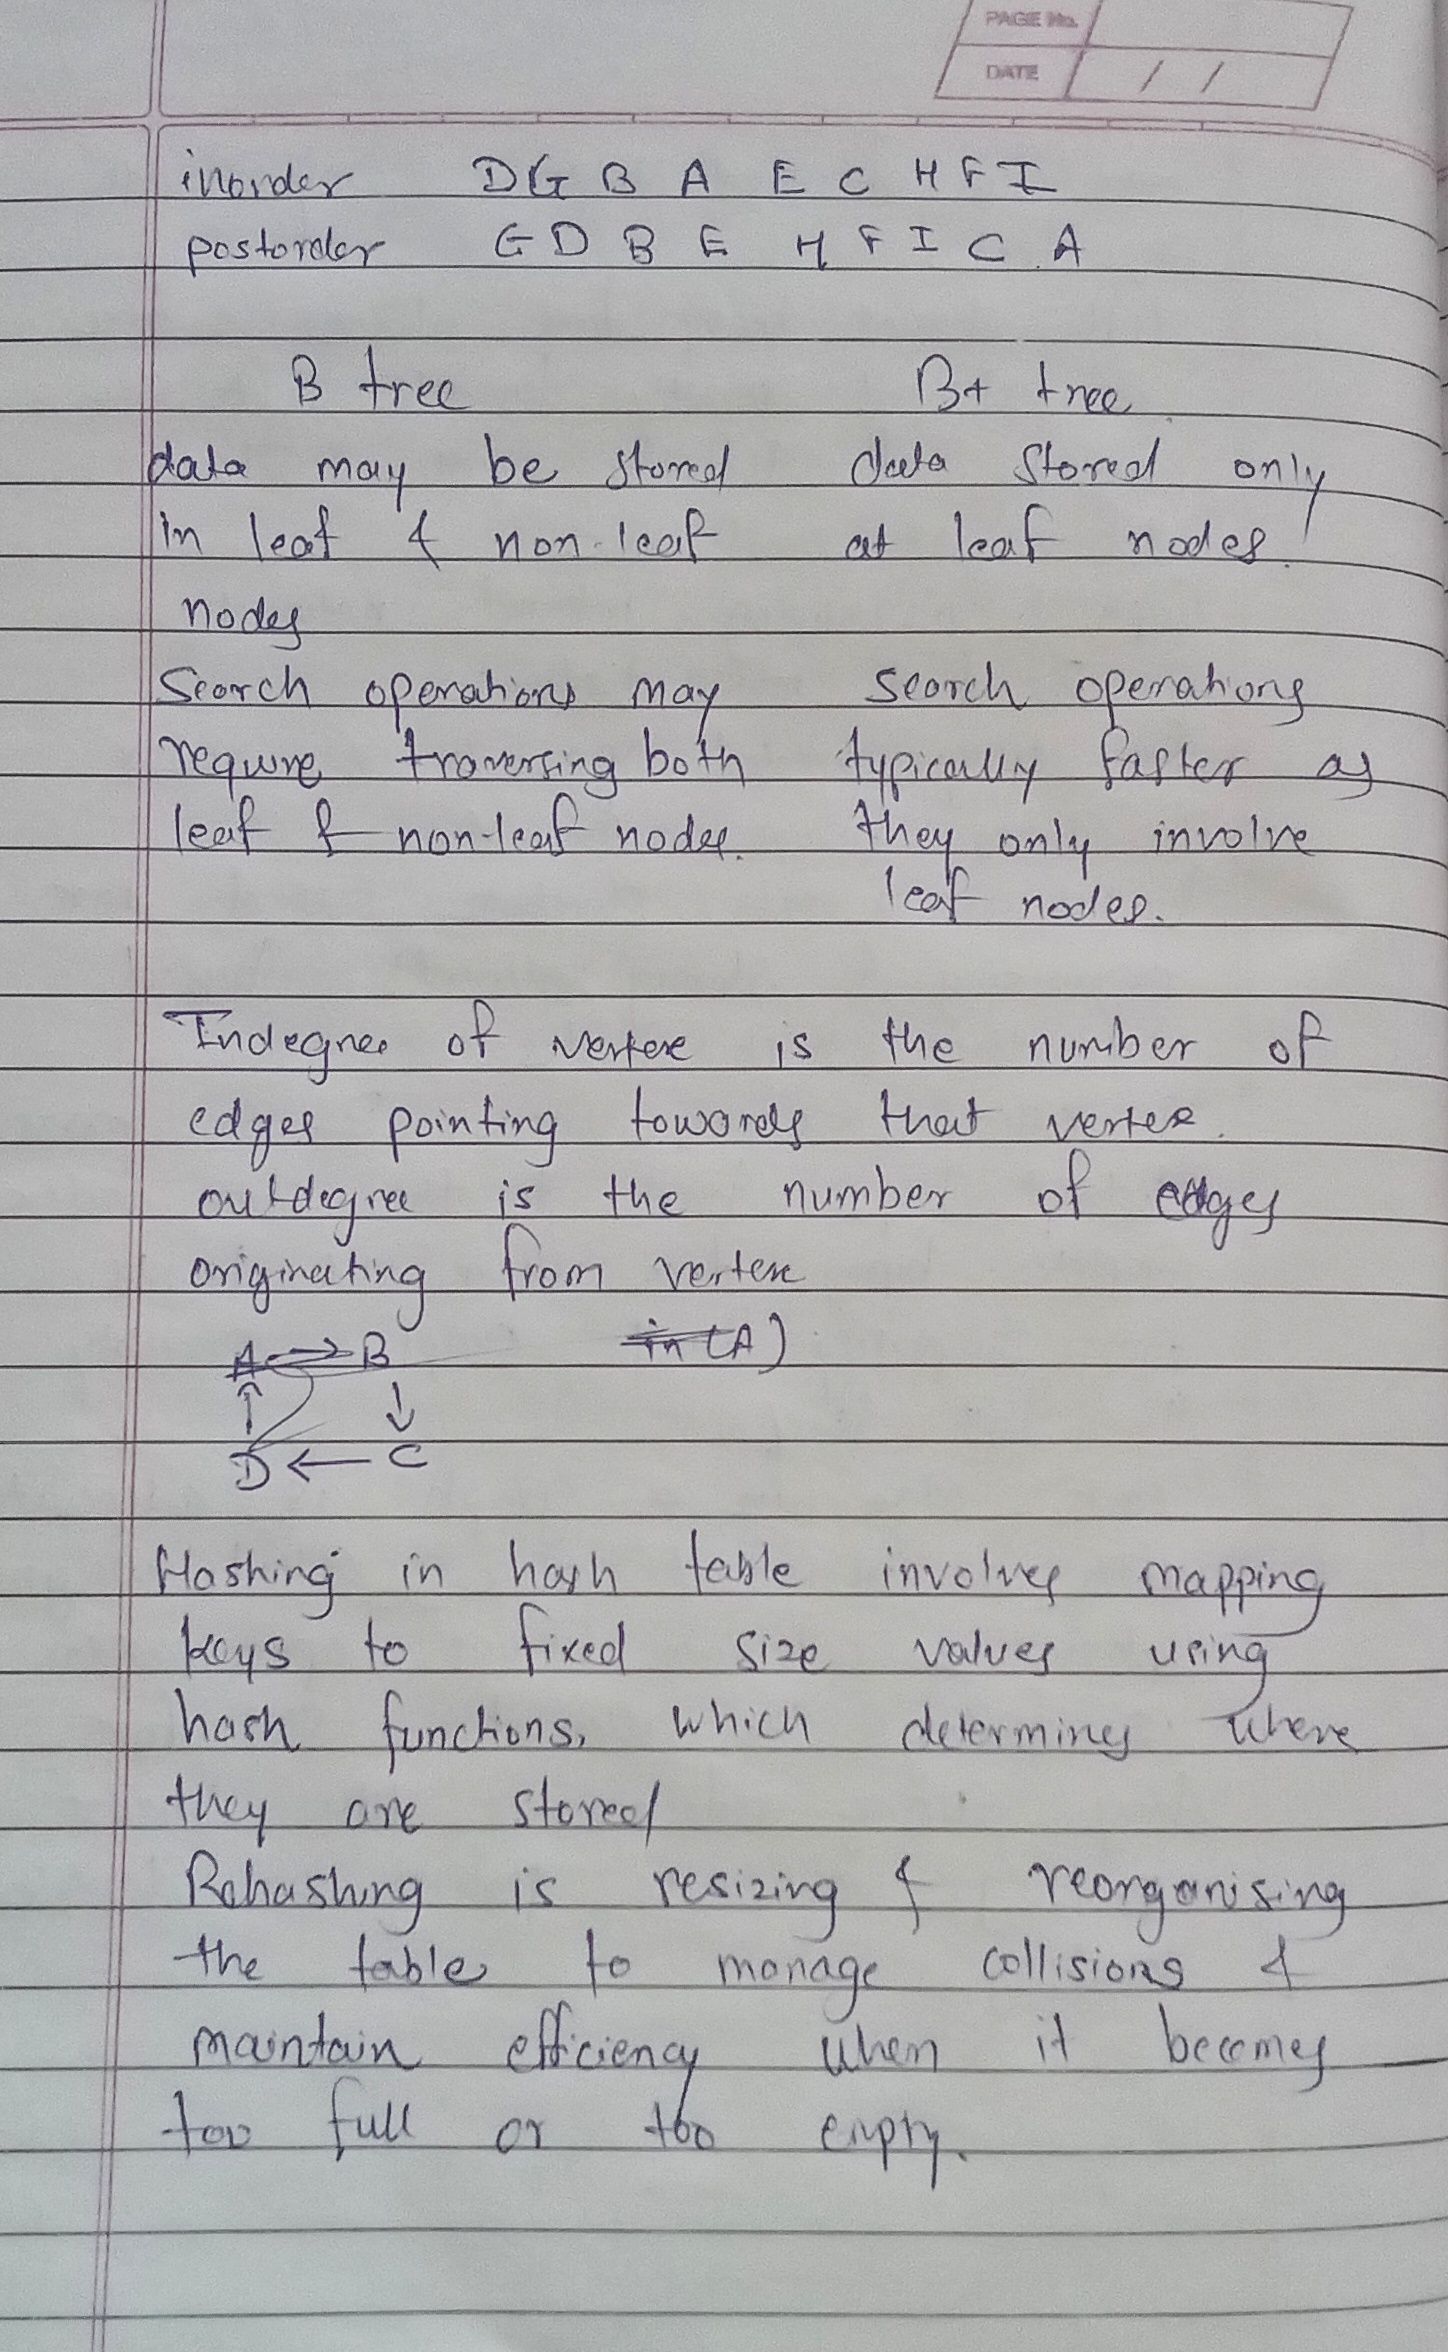 PAGE No.
DATE / /
inorder D G B A E C H F I
postorder G D B E H F I C A
B tree B+ tree
data may be stored data stored only
in leaf & non-leaf at leaf nodes.
nodes
Search operations may search operations
require traversing both typically faster as
leaf & non-leaf nodes. they only involve
leaf nodes.
Indegree of vertex is the number of
edges pointing towards that vertex.
outdegree is the number of edges
originating from vertex
A → B in(A)
↑ ↓
D ← C
Hashing in hash table involves mapping
keys to fixed size values using
hash functions, which determines where
they are stored
Rehashing is resizing & reorganising
the table to manage collisions &
maintain efficiency when it becomes
too full or too empty.